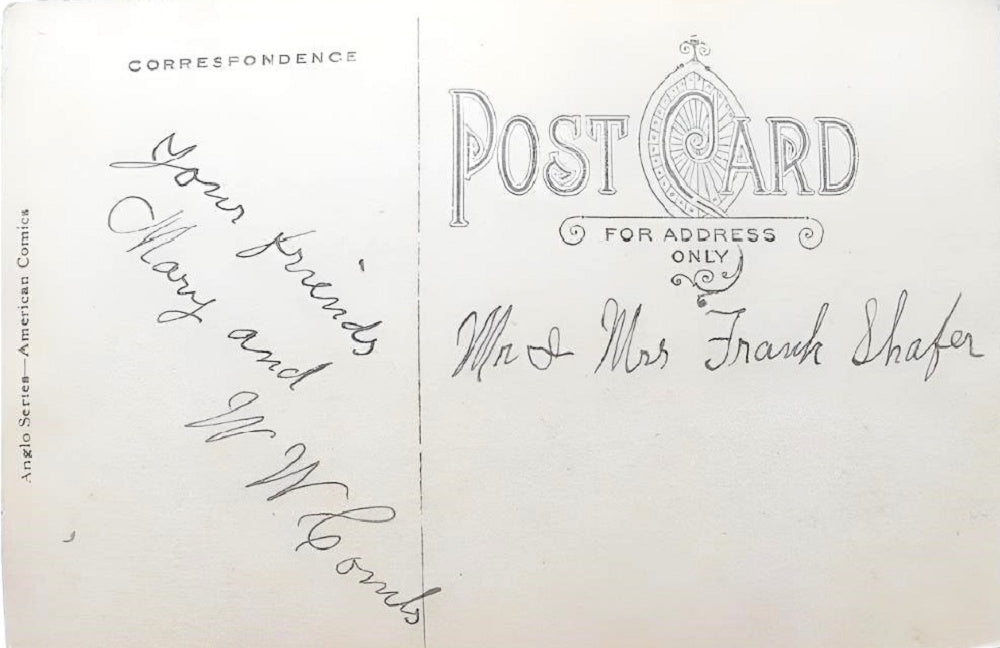 CORRESPONDENCE
Your friends
Mary and
W W Combs
Anglo Series—American Comics
POST CARD
FOR ADDRESS
ONLY
Mr & Mrs Frank Shafer